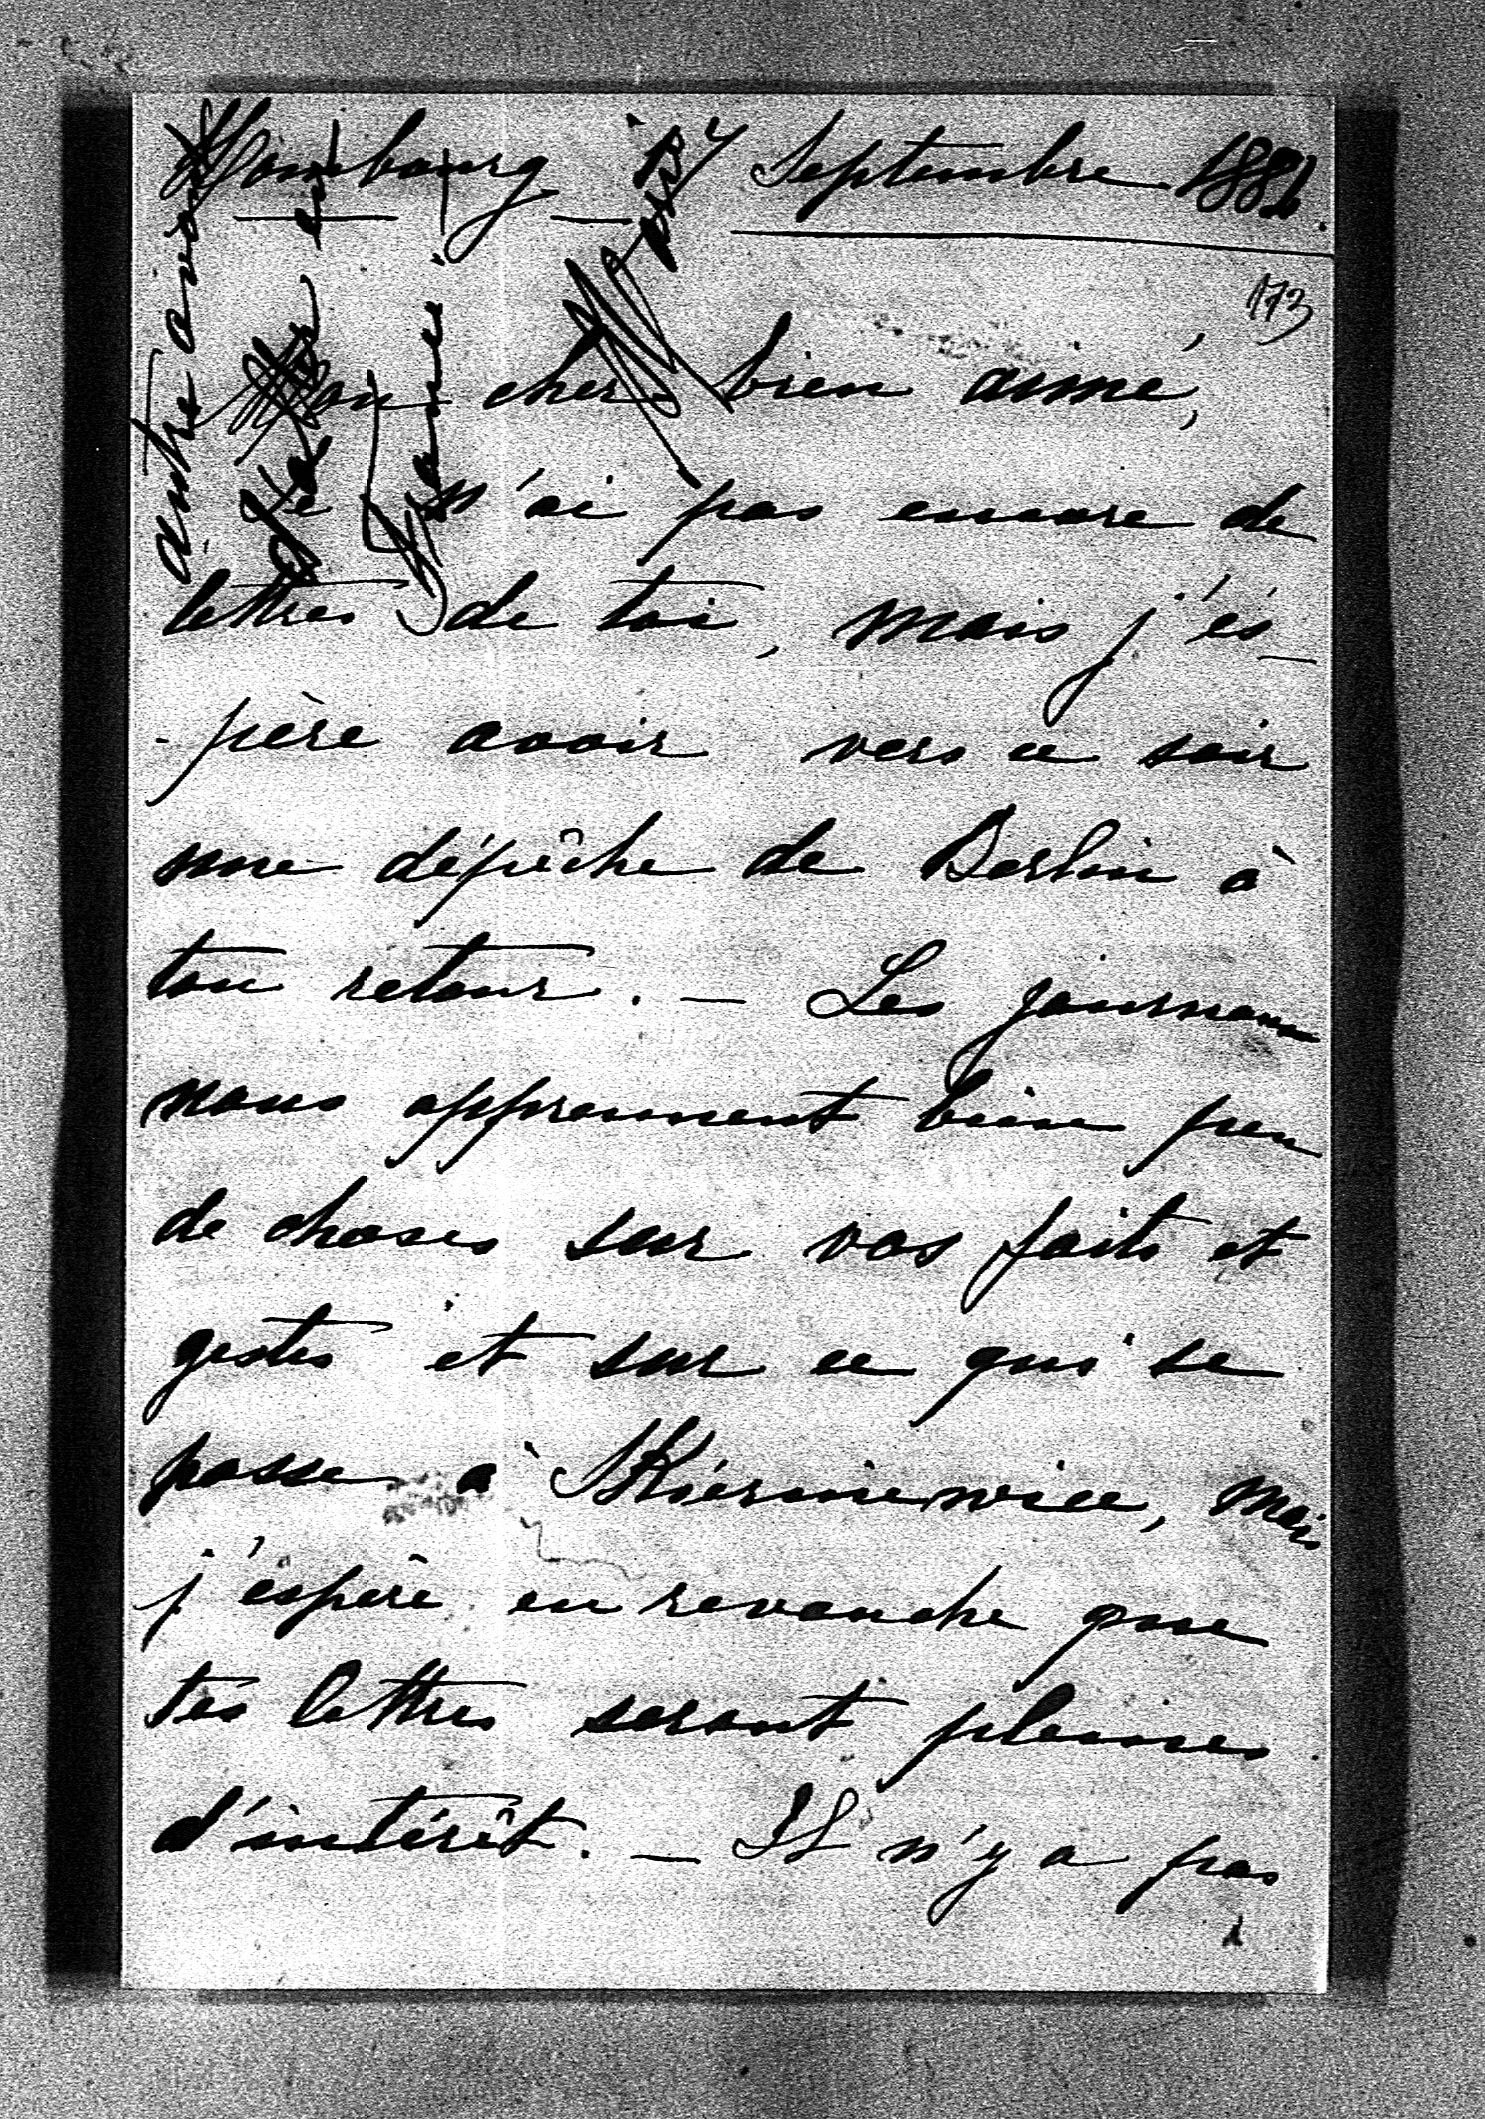 Hombourg 17 Septembre 1884.
173
Mon cher bien aimé,
Je n'ai pas encore de
lettres de toi, mais j'és-
-père avoir vers ce soir
une dépêche de Berlin à
ton retour. — Les journaux
nous apprennent bien peu
de choses sur vos faits et
gestes et sur ce qui se
passe à Skierniewice, mais
j'éspère en revanche que
tes lettres seront pleines
d'intérêt. — Il n'y a pas